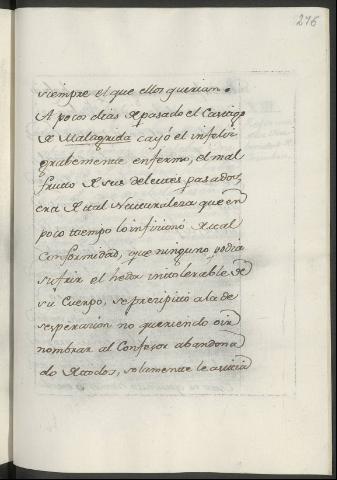 276
siempre el que ellos querian.
A pocos dias de pasado el Castigo
de Malagrida cayó el infeliz
grabemente enfermo, el mal
frutto de sus deleites pasados,
era de tal Naturaleza que en
poco tiempo lo inficionó de tal
Conformidad, que ninguno podia
sufrir el hedor intolerable de
su Cuerpo, se precipitó a la de
sesperacion no queriendo oir
nombrar al Confesor abandona
do de todos, solamente le asistia